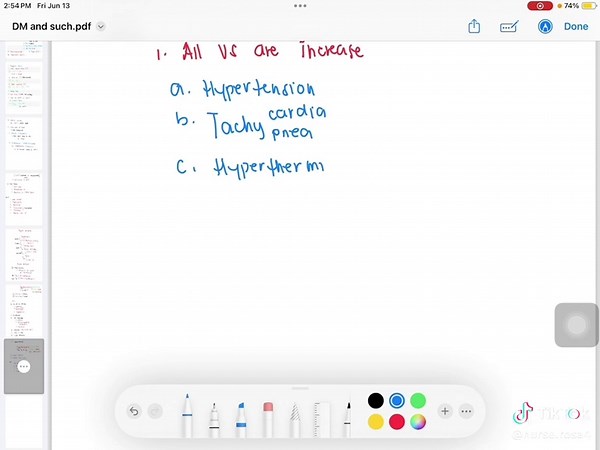 2:54 PM Fri Jun 13
74%
DM and such.pdf
Done
1. All VS are increase
a. Hypertension
b. Tachy cardia
pnea
c. Hyperthermi
TikTok